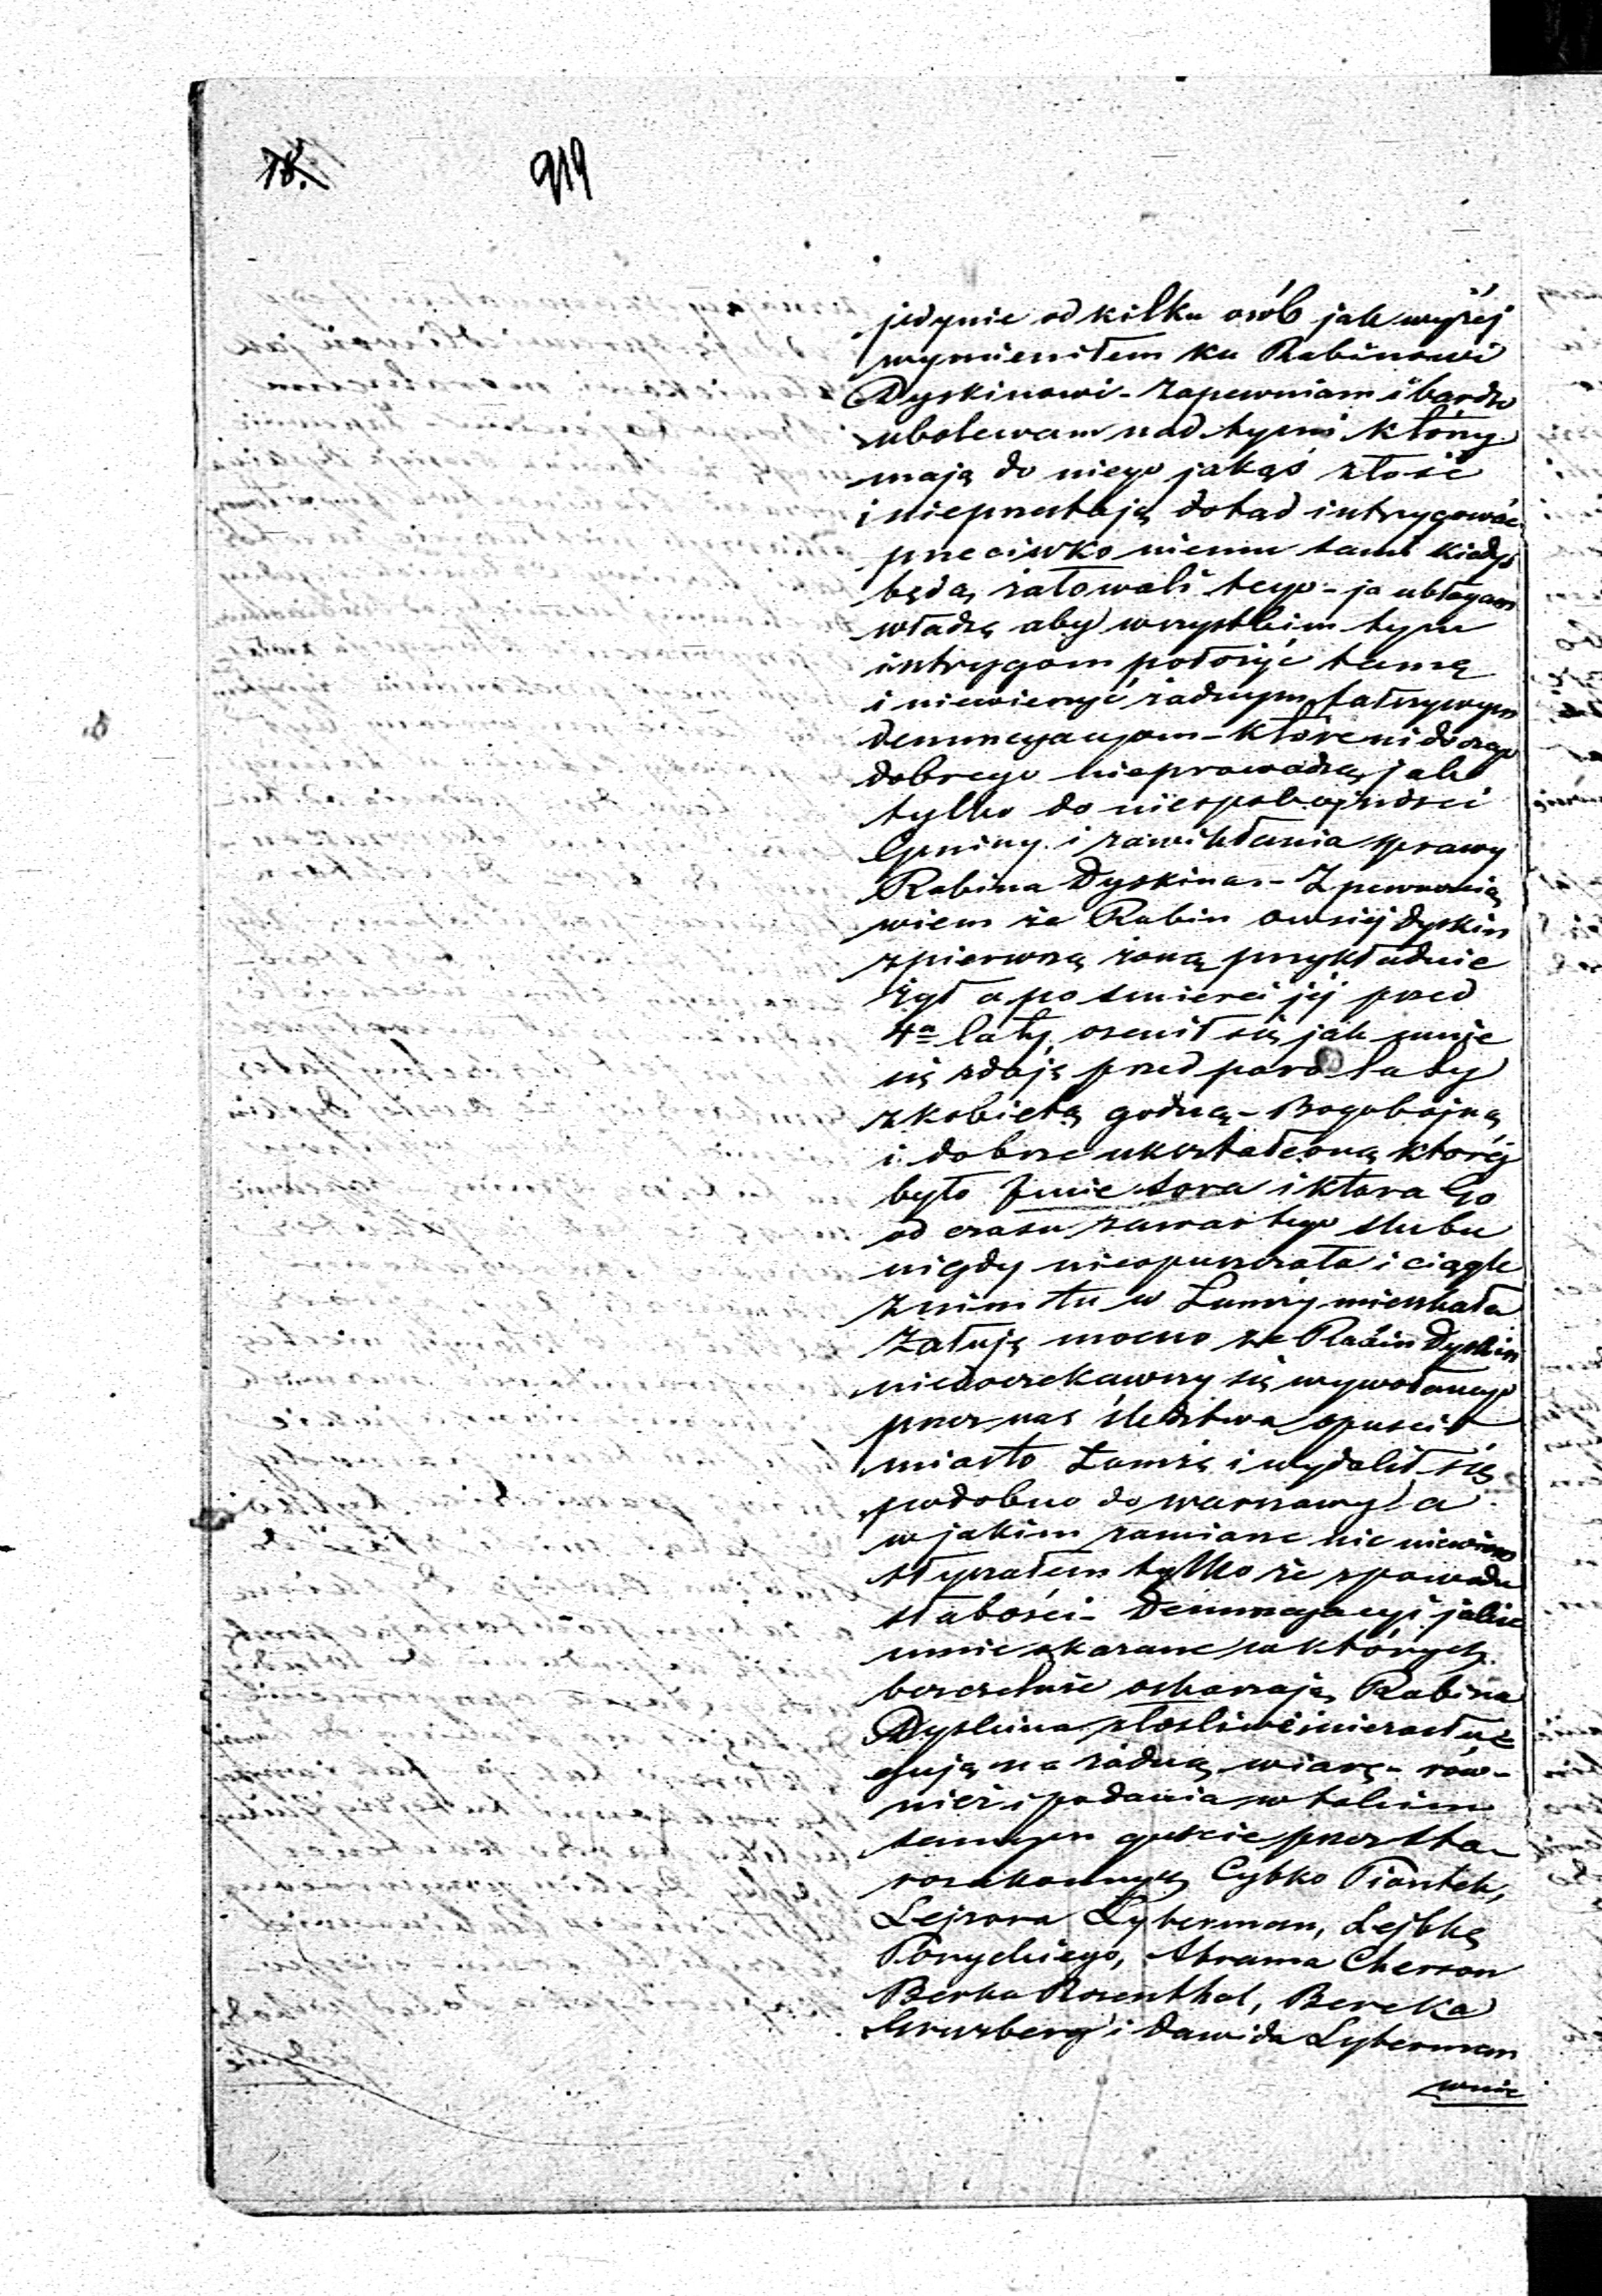 78.
919
jedynie od kilku osób jak wyżéj
wymieniłem ku Rabinowi
Dyskinowi - zapewniam i bardzo
ubolewam nad tymi którzy
mają do niego jakąś złość
i nieprzestają dotąd intrygować
przeciwko niemu sami kiedyś
będą żałowali tego - ja ubłagam
władzę aby wszystkim tym
intrygom położyć tamę
i niewierzyć żadnym fałszywym
denuncyacyom - które ni do czego
dobrego nieprowadzą jak
tylko do niespokojności
Gminy i zawikłania sprawy
Rabina Dyskina - Z pewnością
wiem że Rabin Owsiéj Dyskin
z pierwszą żoną przykładnie
żył a po śmierci jéj przed
4a laty ożenił się jak mnie
się zdaję przed paro laty
z kobietą godną - Bogobojną
i dobrze ukształconą któréj
było Imie Sora i ktora Go
od czasu zawartego slubu
nigdy nieopuszczała i ciągle
z nim tu w Łomży mieszkała
Żałuję mocno że Rabin Dyskin
niedoczekawszy się wywołanego
przez nas śledztwa opuscił
miasto Łomżę i wydalił się
podobno do Warszawy a
w jakim zamiarze nic niewiem
słyszałem tylko że z powodu
słabości - Denuncyacyi jakie
mnie okazane na których
bezczelnie oskarżają Rabina
Dyskina złosliwe i niezasłu-
gują na żadną wiarę - rów-
nież i podania w takim
samym guście przez sta-
rozakonnych Cybko Piontek,
Lejzora Lyberman, Lejbkę
Zboryckiego, Abrama Cherson
Berka Rosenthal, Bereka
Grurberg i Dawida Lyberman
wnie